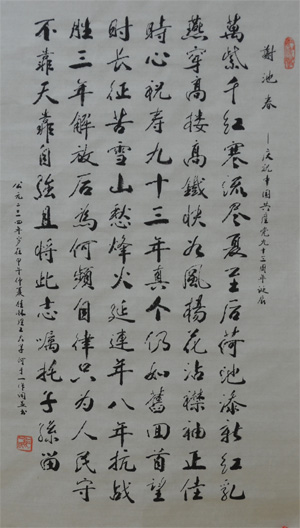 謝池春
——庆祝中国共产党九十三周年诞辰
萬紫千红寒流尽夏至后荷池添新红乳
燕穿高楼高鐵快如風楊花沾襟袖正佳
時心祝寿九十三年真个仍如舊回首望
时长征苦雪山愁烽火延連年八年抗战
胜三年解放后為何頻自律只为人民守
不靠天靠自强且将此志嘱托子孫留
公元二〇一四年岁在甲午仲夏桂林